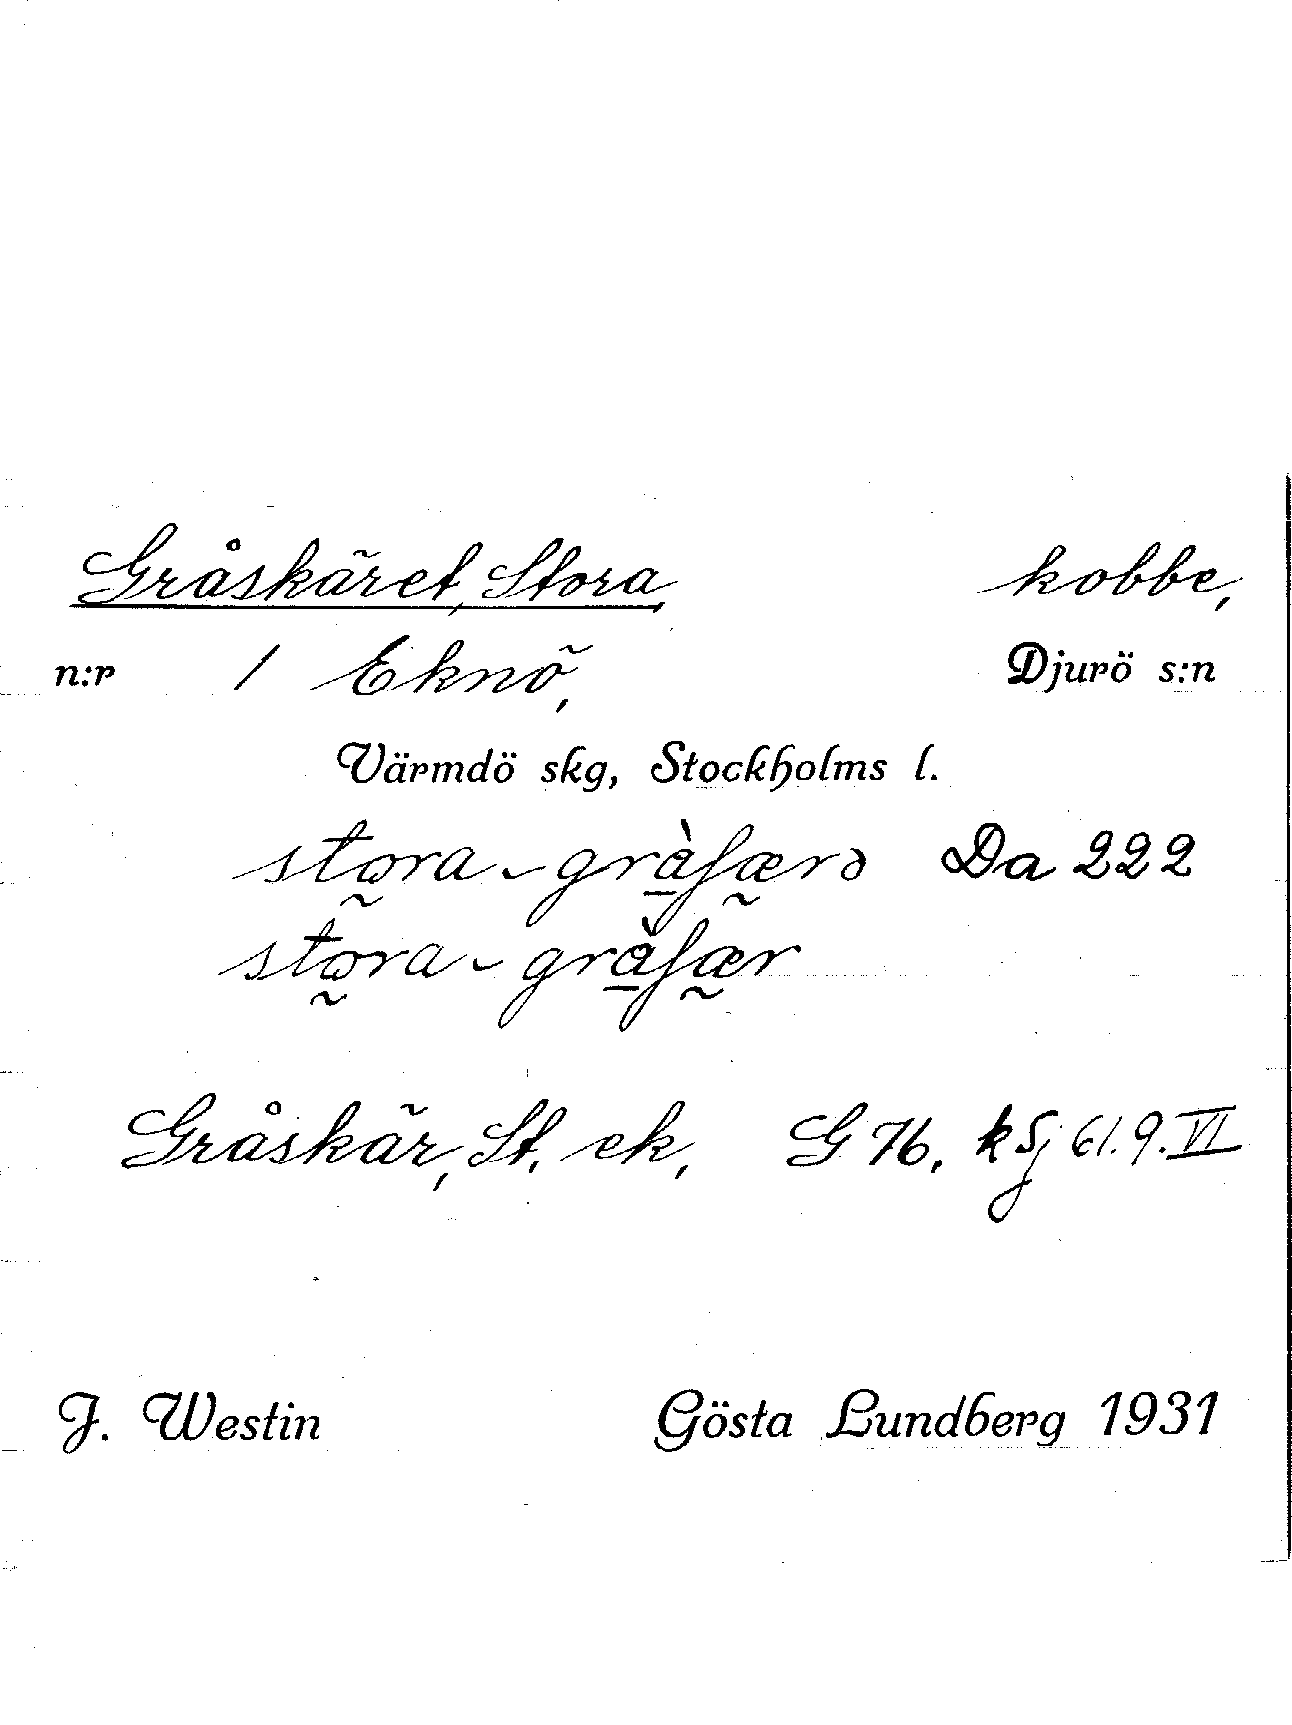 Gråskäret, Stora, kobbe,
n:r 1 Eknö, Djurö s:n
Värmdö skg, Stockholms l.
stora-gràʃærə Da 222
stora-gràʃær
Gråskär, St. ek, G 76, k Sj 61.9.VI
J. Westin Gösta Lundberg 1931